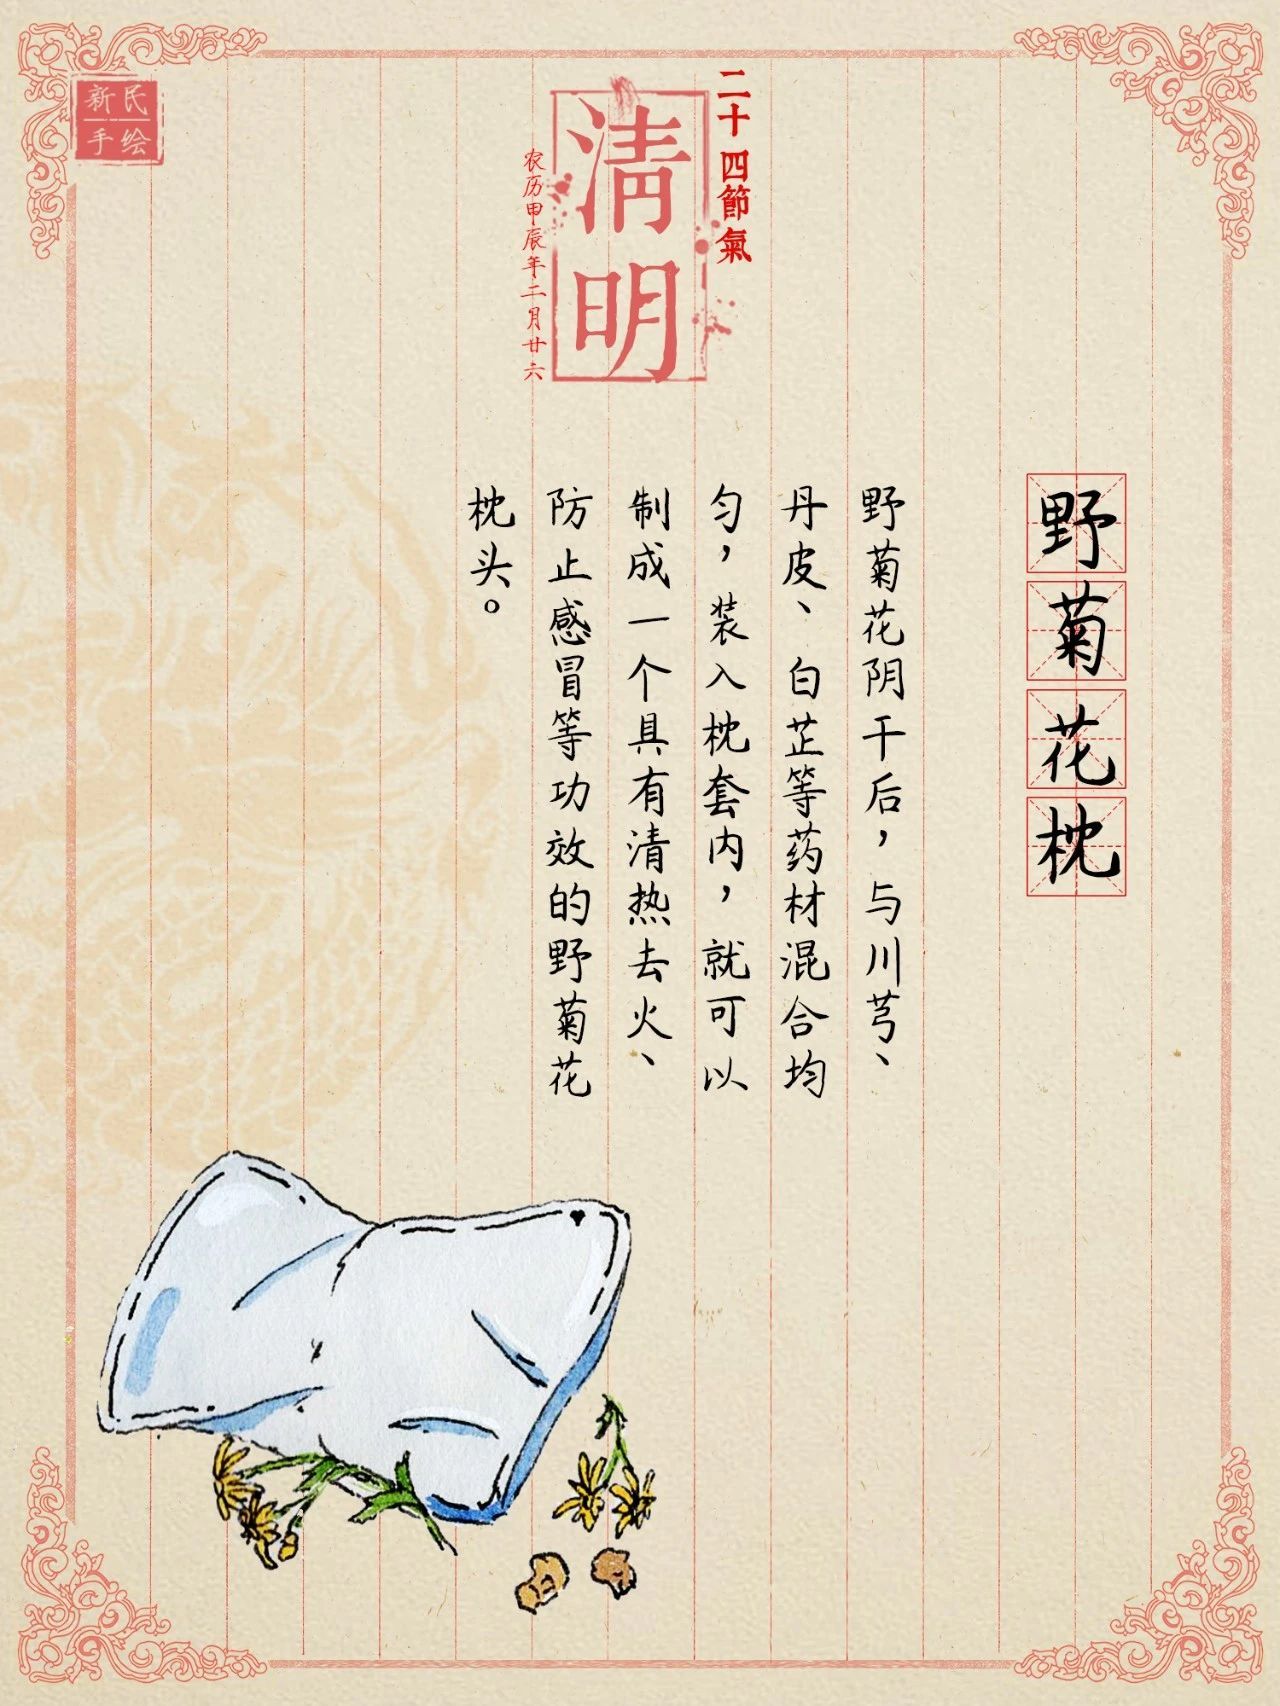 新民
手绘
二十四節氣
清明
农历甲辰年二月廿六
野菊花枕
野菊花阴干后，与川芎、
丹皮、白芷等药材混合均
匀，装入枕套内，就可以
制成一个具有清热去火、
防止感冒等功效的野菊花
枕头。